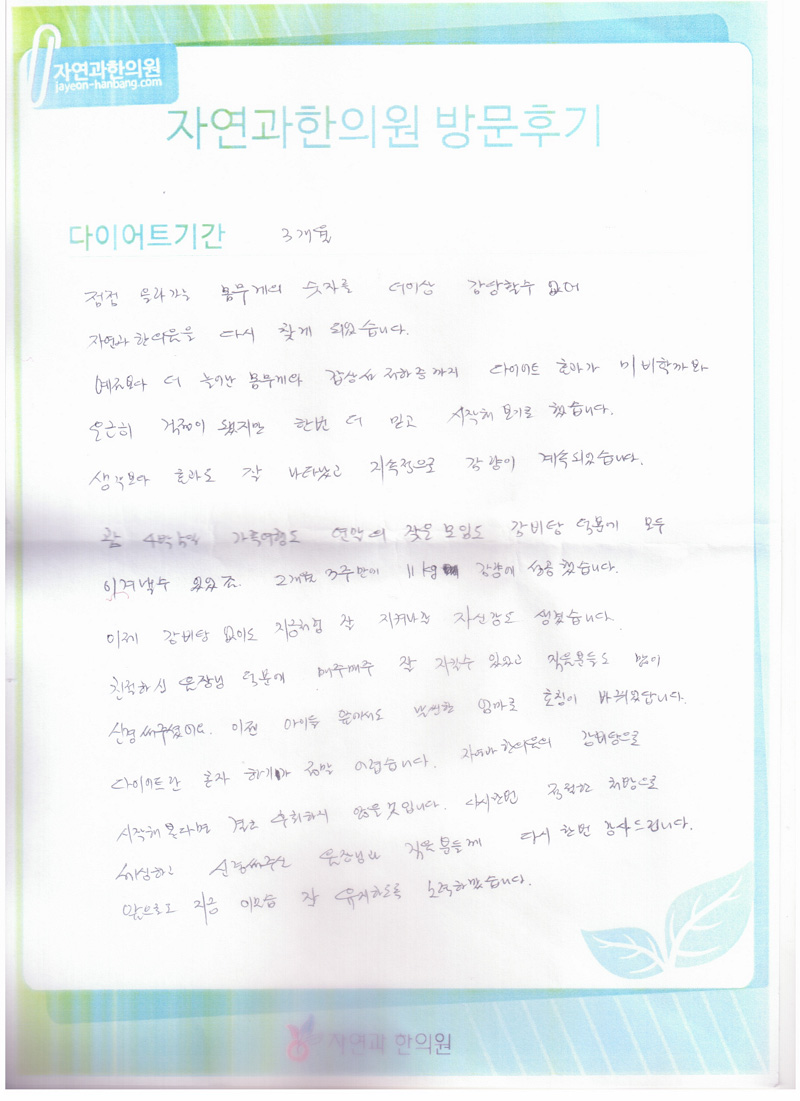 자연과한의원
jayeon-hanbang.com
자연과한의원 방문후기
다이어트기간 3개월
점점 올라가는 몸무게의 숫자를 더이상 감당할수 없어
자연과 한의원을 다시 찾게 되었습니다.
예전보다 더 늘어난 몸무게와 갑상선 저하증까지 다이어트 효과가 미비할까봐
은근히 걱정이 됐지만 한번 더 믿고 시작해 보기로 했습니다.
생각보다 효과도 잘 나타났고 지속적으로 감량이 계속되었습니다.
가족여행도 연말의 잦은 모임도 감비탕 덕분에 모두
이겨낼수 있었죠. 2개월 3주만에 11kg 감량에 성공했습니다.
이제 감비탕 없이도 지금처럼 잘 지켜나갈 자신감도 생겼습니다.
친절하신 원장님 덕분에 매주매주 잘 지킬수 있었고 직원분들도 많이
신경써주셨어요. 이젠 아이들 앞에서도 날씬한 엄마로 호칭이 바뀌었답니다.
다이어트란 혼자 하기가 정말 어렵습니다. 자연과 한의원의 감비탕으로
시작해 본다면 결코 후회하지 않을 것입니다. 다시한번 처방으로
세심하고 신경써주신 원장님과 직원분들께 다시 한번 감사드립니다.
앞으로도 지금 이모습 잘 유지하도록 노력하겠습니다.
자연과 한의원